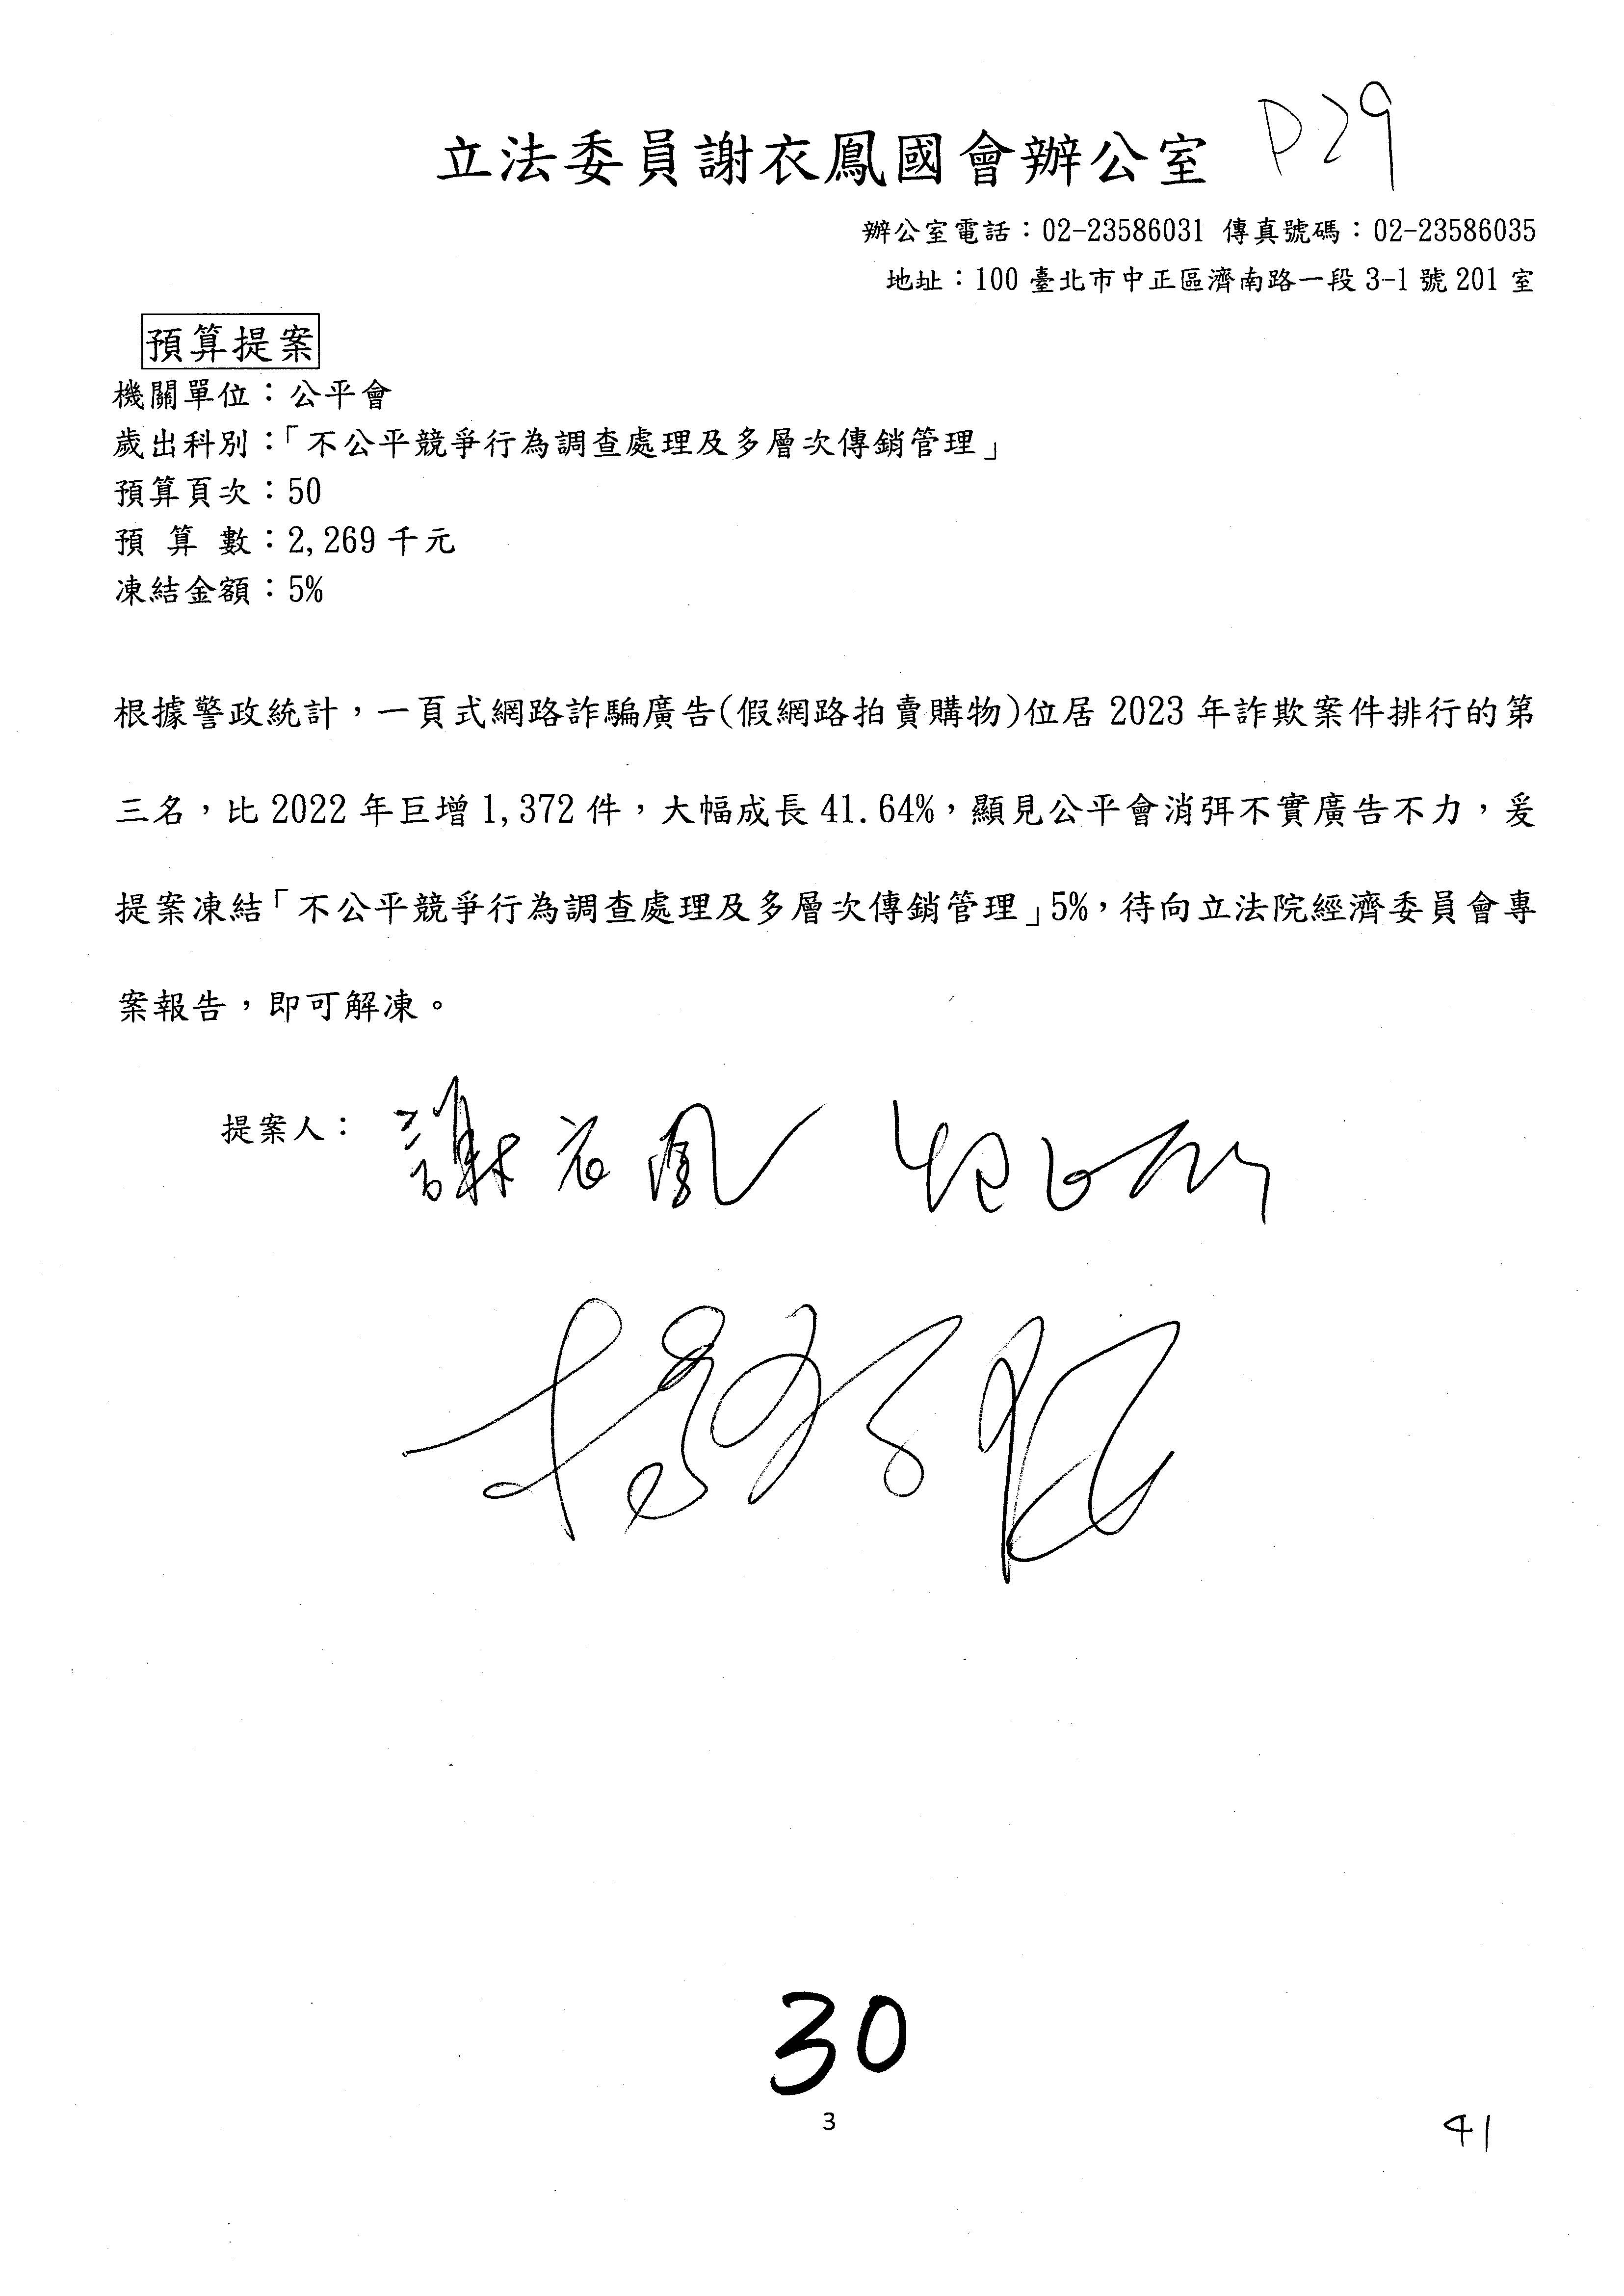 立法委員謝衣鳳國會辦公室 P29
辦公室電話：02-23586031 傳真號碼：02-23586035
地址：100 臺北市中正區濟南路一段 3-1 號 201 室
預算提案
機關單位：公平會
歲出科別：「不公平競爭行為調查處理及多層次傳銷管理」
預算頁次：50
預 算 數：2,269 千元
凍結金額：5%
根據警政統計，一頁式網路詐騙廣告(假網路拍賣購物)位居 2023 年詐欺案件排行的第
三名，比 2022 年巨增 1,372 件，大幅成長 41.64%，顯見公平會消弭不實廣告不力，爰
提案凍結「不公平競爭行為調查處理及多層次傳銷管理」5%，待向立法院經濟委員會專
案報告，即可解凍。
提案人： 謝衣鳳
30
3
41